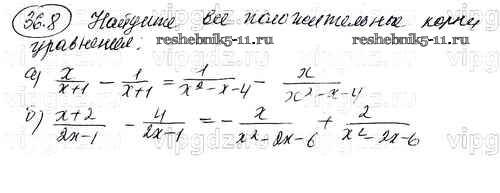 36.8 Найдите все положительные корни
уравнения:
reshebnik5-11.ru reshebnik5-11.ru
а) x/(x+1) - 1/(x+1) = 1/(x²-x-4) - x/(x²-x-4)
б) (x+2)/(2x-1) - 4/(2x-1) = - x/(x²-2x-6) + 2/(x²-2x-6)